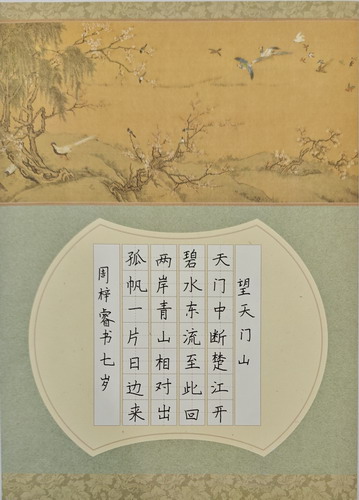 望天门山
天门中断楚江开
碧水东流至此回
两岸青山相对出
孤帆一片日边来
周梓睿书七岁